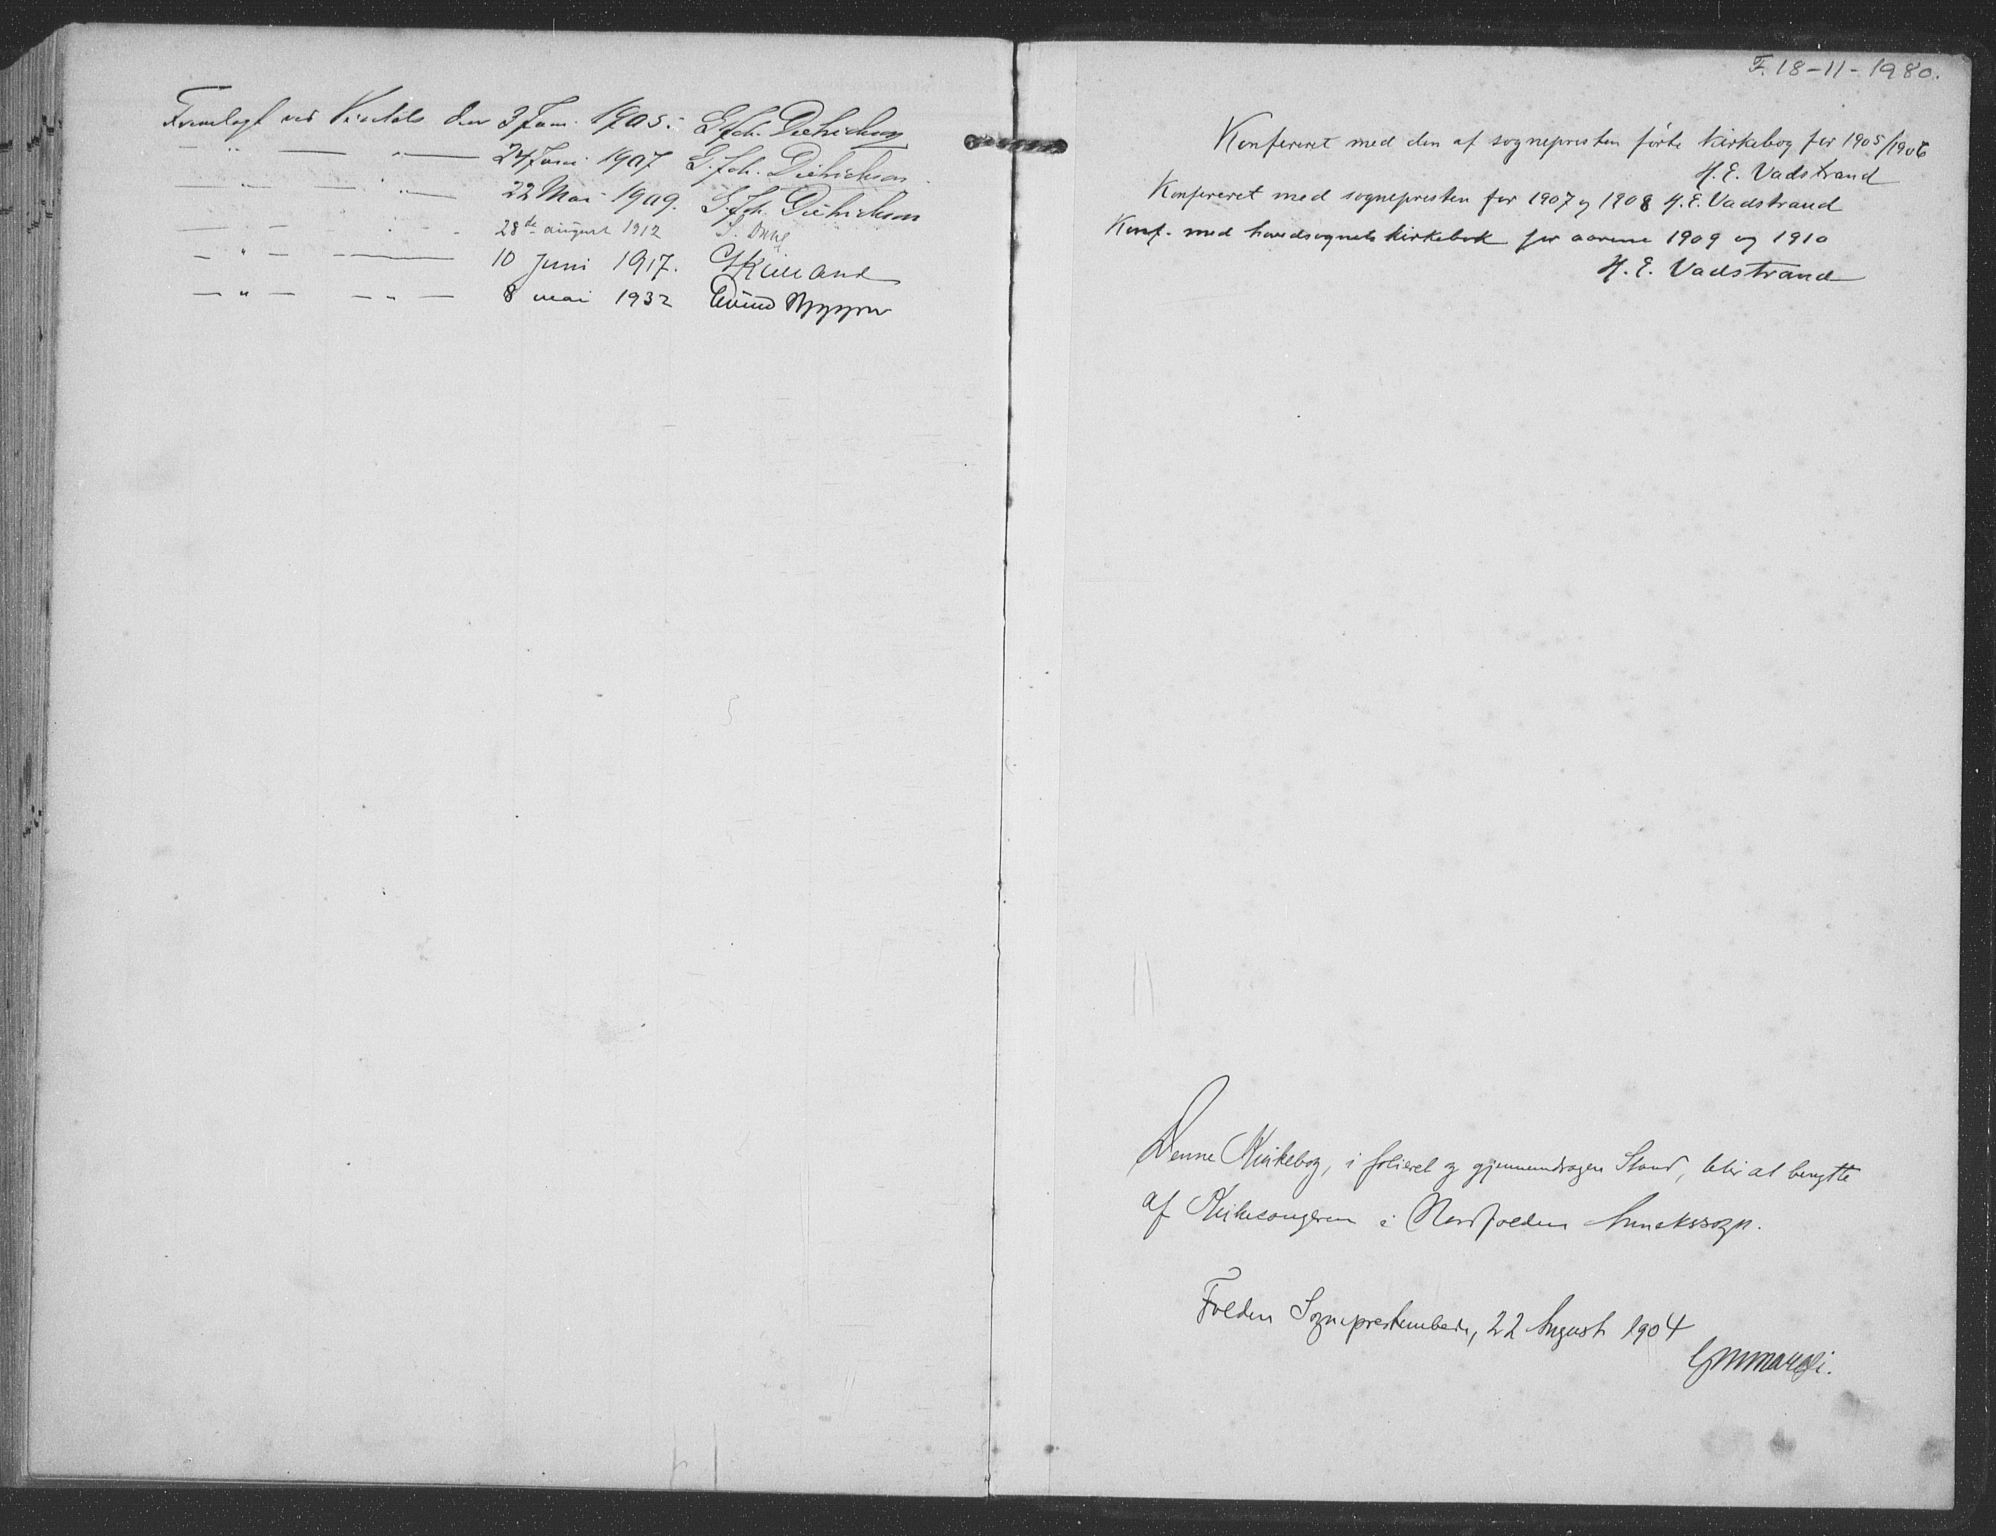 Fremlagt ved Visitats den 3 Jan. 1905. G. Joh. Dietrichson
— " — — " — 24 Juni 1907 G. Joh. Dietrichson
— " — — " — 22 Mai 1909. G. Joh. Dietrichson
28de august 1912
— " — — 10 Juni 1917. Kielland
— " — — " — 8 mai 1932 Eivind Berggrav
F. 18-11-1980.
Konfereret med den af sognepresten førte kirkebog for 1905/1906
H. E. Vadstrand
Konfereret med sognepresten for 1907 og 1908 H. E. Vadstrand
Konf. med hovedsognets kirkebok for aarene 1909 og 1910
H. E. Vadstrand
Denne Kirkebog, i folieret og gjennemdragen Stand, blir at benytte
af Kirkesangeren i Nordfolden Annekssogn.
Folden Sogneprestembede, 22 August 1904